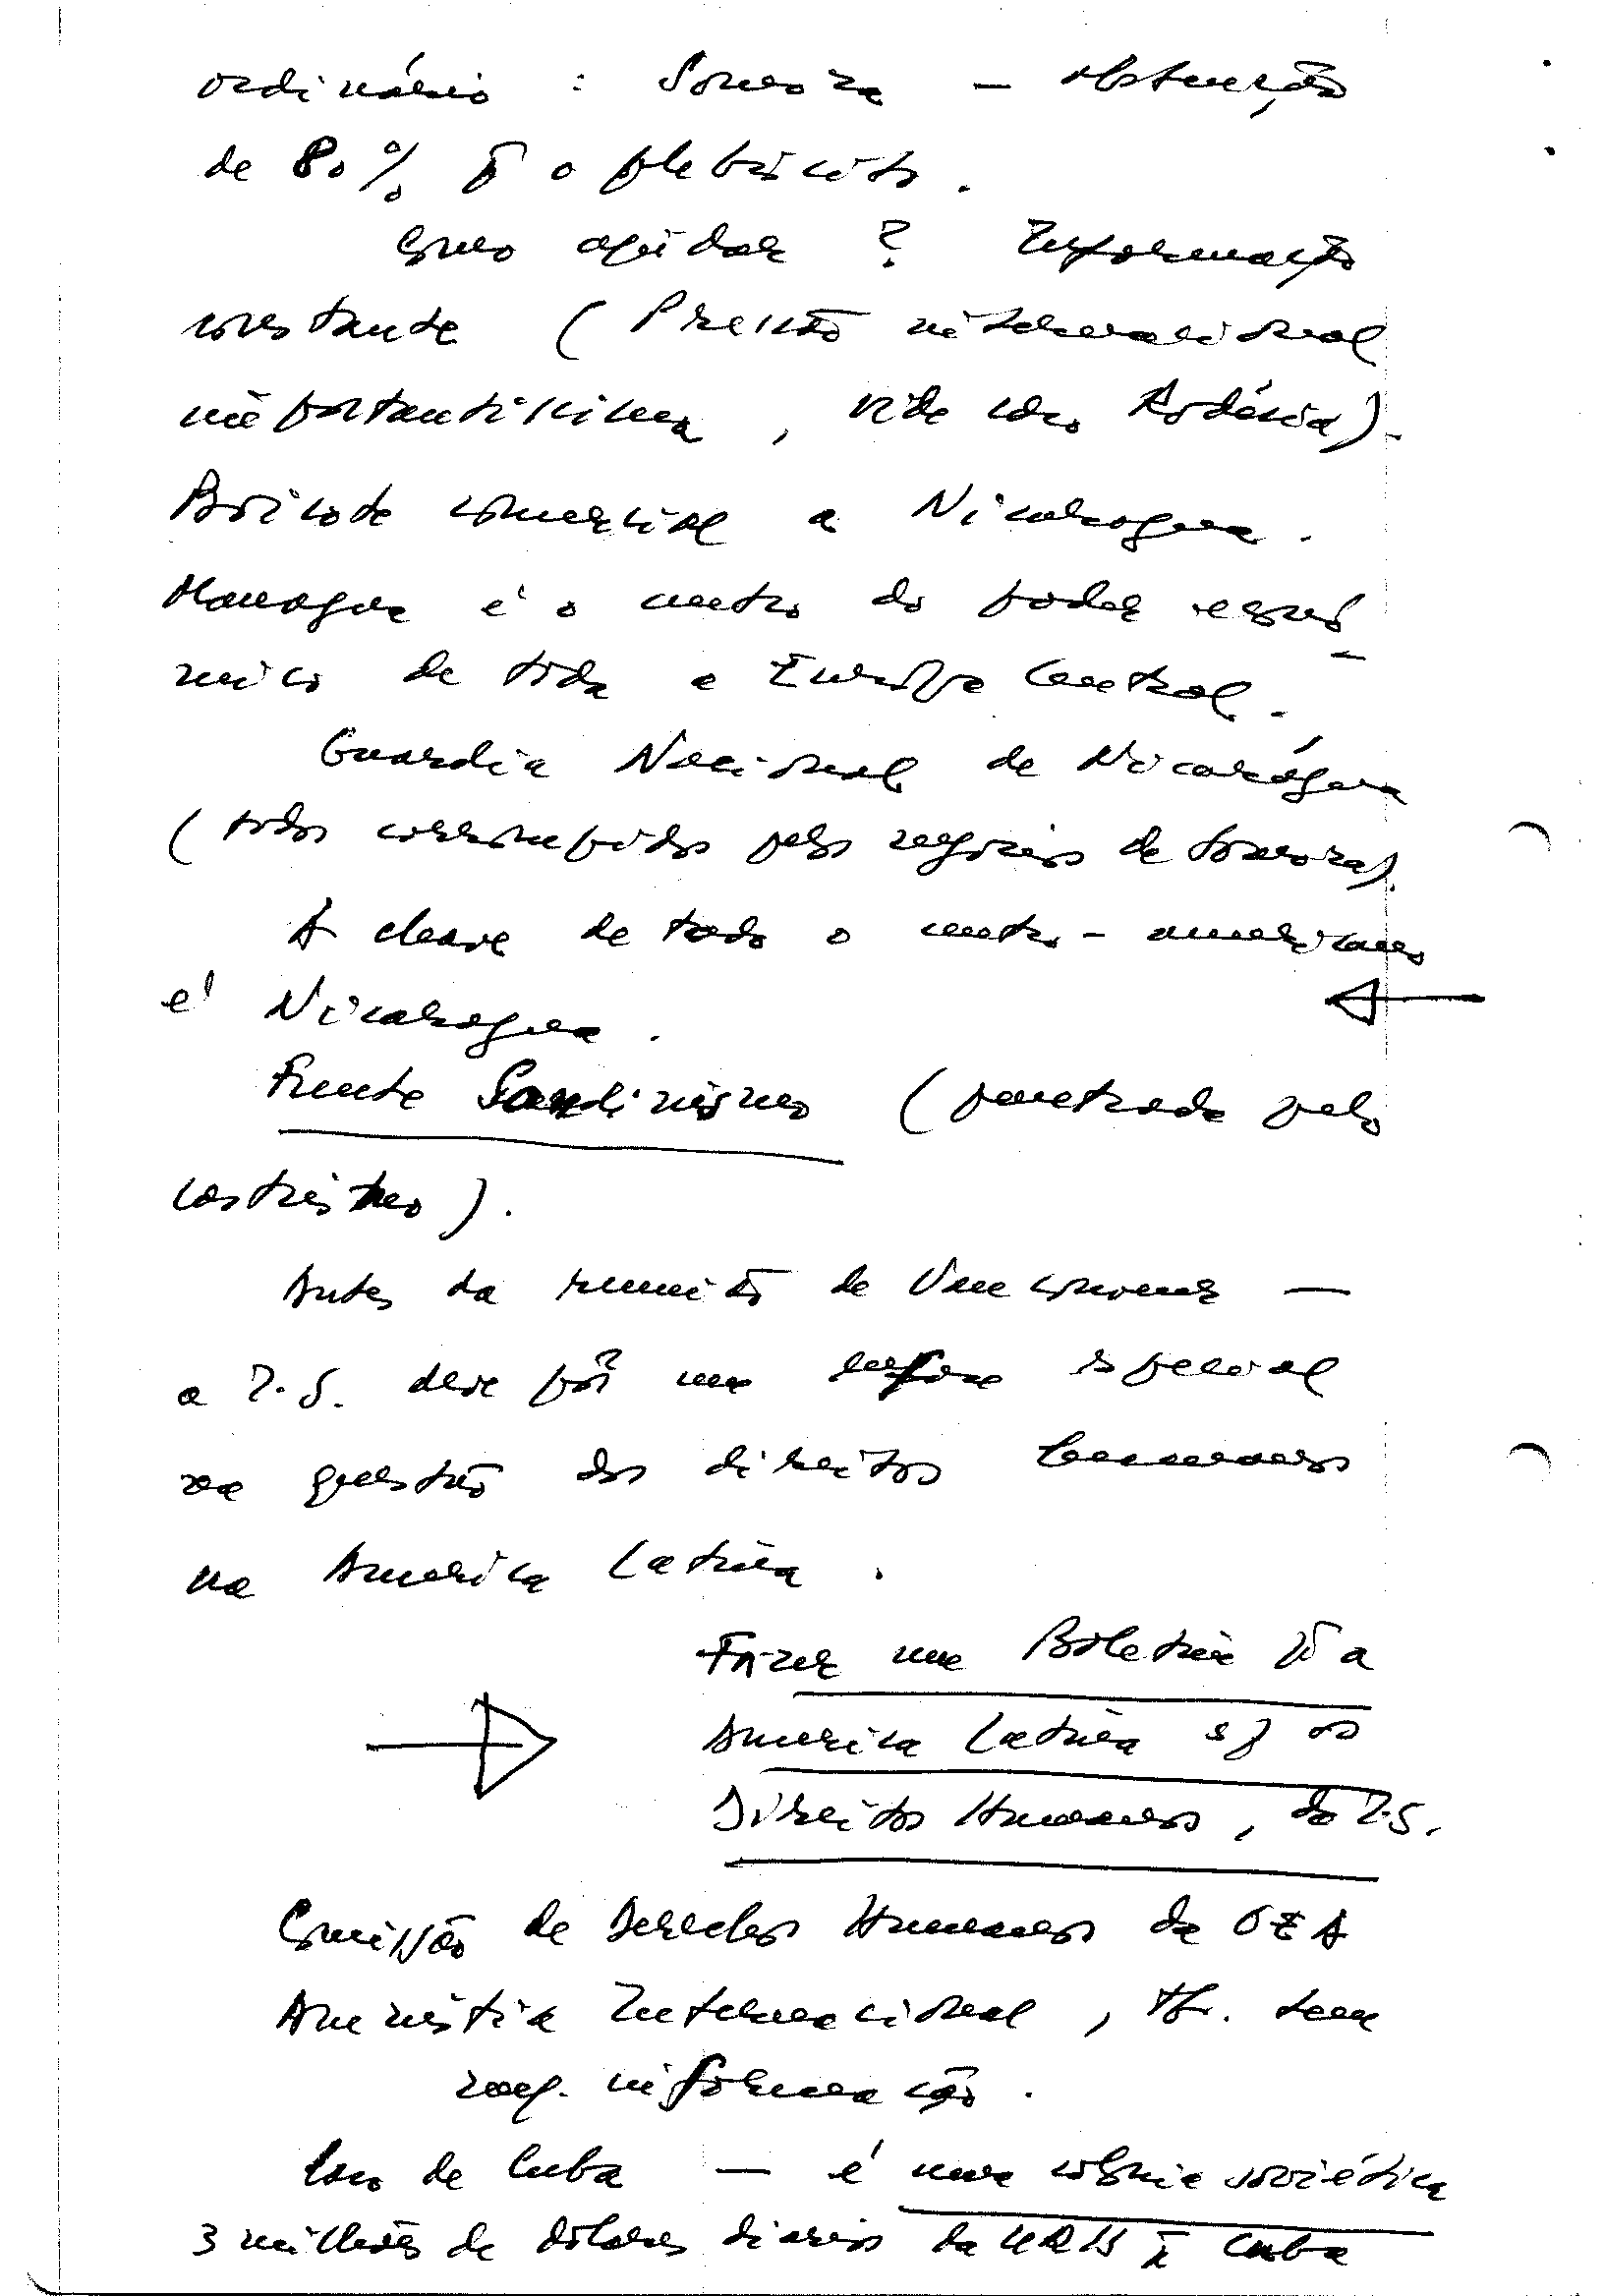 ordinário : Somoza — obtenção
de 80% p̄ o plebiscito.
Como ajudar ? Informação
constante ( Pressão internacional
importantissima, vide caso Rodésia).
Boicote comercial a Nicaragua.
Managua é o centro do poder econô-
mico de toda a Europa Central.
Guardia Nacional de Nicarágua
( todos corrompidos pelo regimen de Somoza).
A chave de todo o centro-americano
é Nicaragua.
Frente Sandinismo ( penetrada pelo
castrismo ).
Antes da reunião de Vancouver —
a I.S. deve pôr um enfase especial
na questão dos direitos humanos
na America Latina.
Fazer um Boletim p̄ a
America Latina s/ os
Direitos Humanos, da I.S.
Comissão de Derechos Humanos da OEA
Amnistia Internacional, tb. tem
informação.
Caso de Cuba — é uma colonia soviética
3 milhões de dólares diarios da URSS p̄ Cuba